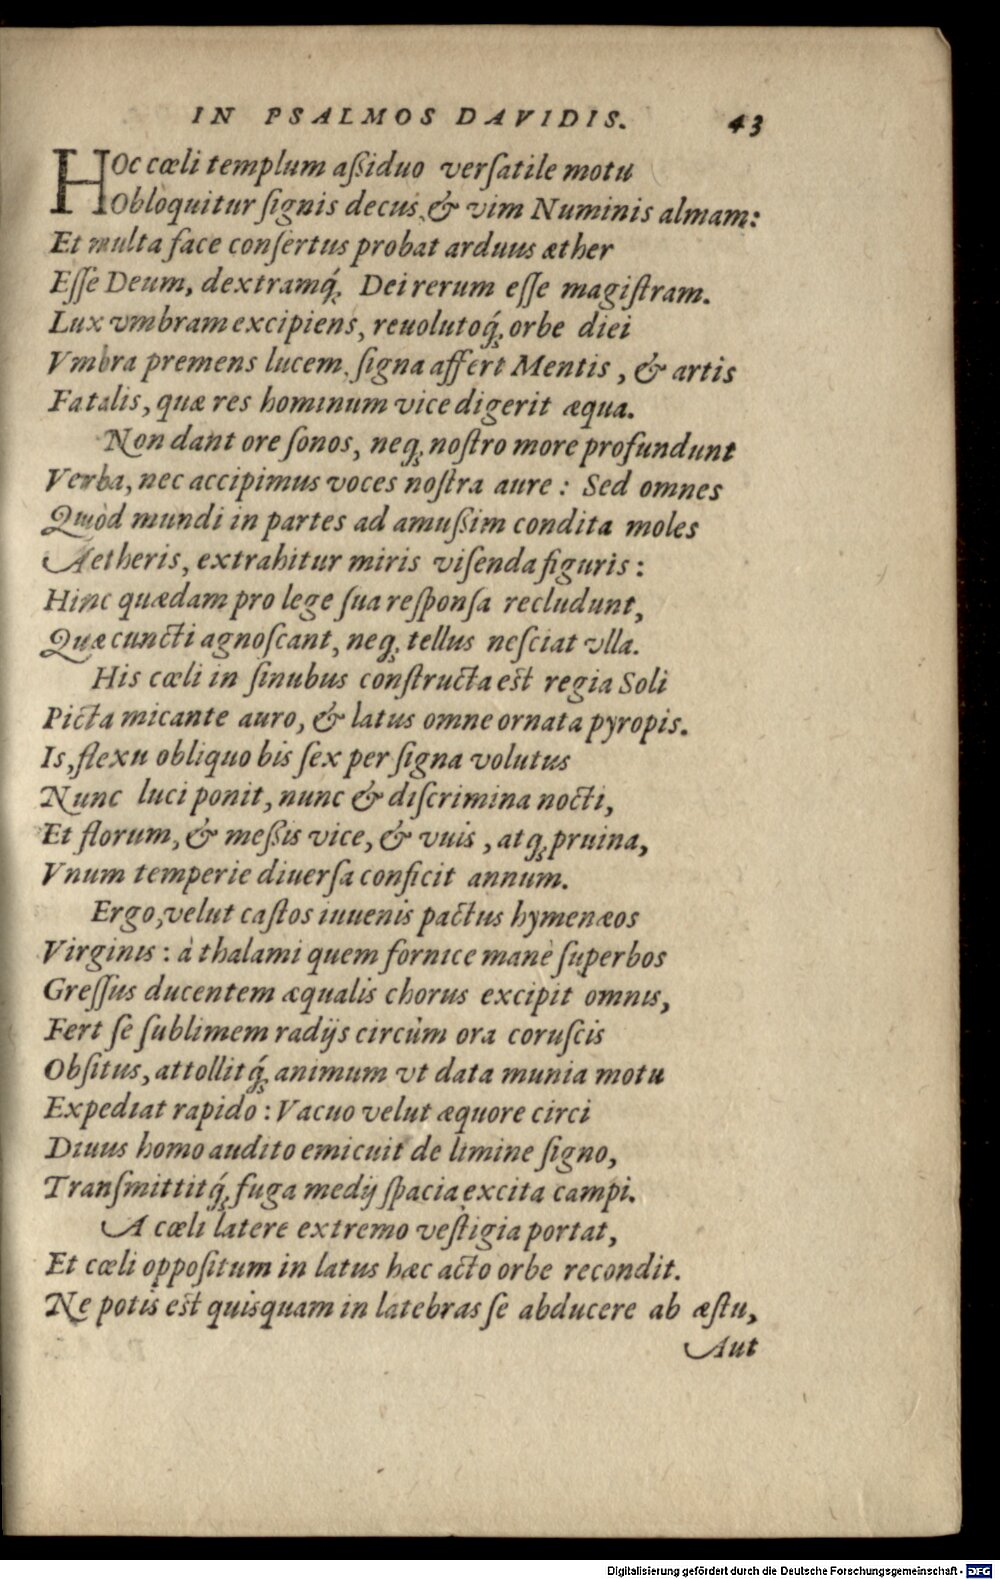 IN PSALMOS DAVIDIS. 43
HOc cœli templum aßiduo verſatile motu
Obloquitur ſignis decus, & vim Numinis almam:
Et multa face conſertus probat arduus æther
Eſſe Deum, dextramq́; Dei rerum eſſe magiſtram.
Lux vmbram excipiens, reuolutoq́; orbe diei
Vmbra premens lucem, ſigna affert Mentis, & artis
Fatalis, quæ res hominum vice digerit æqua.
Non dant ore ſonos, neq; noſtro more profundunt
Verba, nec accipimus voces noſtra aure: Sed omnes
Quòd mundi in partes ad amußim condita moles
Aetheris, extrahitur miris viſenda figuris:
Hinc quædam pro lege ſua reſponſa recludunt,
Quæ cuncti agnoſcant, neq; tellus neſciat vlla.
His cœli in ſinubus conſtructa est regia Soli
Picta micante auro, & latus omne ornata pyropis.
Is, flexu obliquo bis ſex per ſigna volutus
Nunc luci ponit, nunc & diſcrimina nocti,
Et florum, & meßis vice, & vuis, atq; pruina,
Vnum temperie diuerſa conficit annum.
Ergo, velut caſtos iuuenis pactus hymenæos
Virginis: à thalami quem fornice manè ſuperbos
Greſſus ducentem æqualis chorus excipit omnis,
Fert ſe ſublimem radijs circùm ora coruſcis
Obſitus, attollitq́; animum vt data munia motu
Expediat rapido: Vacuo velut æquore circi
Diuus homo audito emicuit de limine ſigno,
Tranſmittitq́; fuga medij ſpacia excita campi.
A cœli latere extremo veſtigia portat,
Et cœli oppoſitum in latus hæc acto orbe recondit.
Ne potis est quisquam in latebras ſe abducere ab æſtu,
Aut
Digitalisierung gefördert durch die Deutsche Forschungsgemeinschaft - DFG